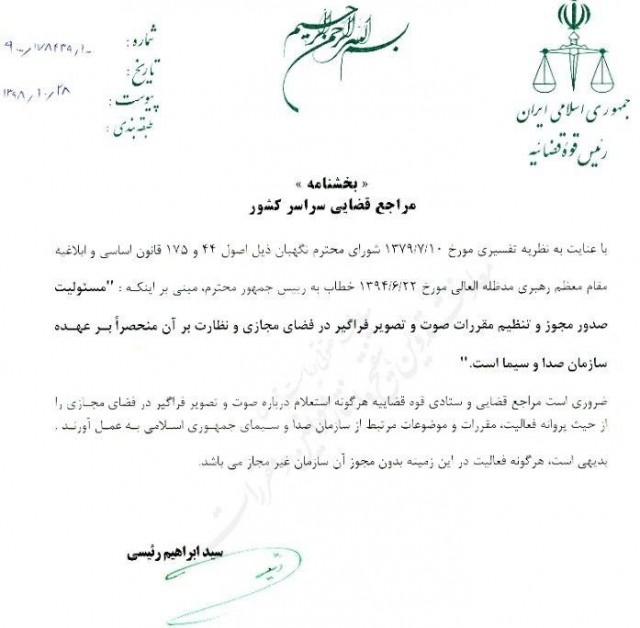 بسم الله الرحمن الرحیم
جمهوری اسلامی ایران
رئیس قوه قضائیه
شماره : ۹۰۰۰/۱۷۸۴۳۹/۱۰۰
تاریخ : ۱۳۹۸/۱۰/۲۸
پیوست :
طبقه بندی :
« بخشنامه »
مراجع قضایی سراسر کشور
با عنایت به نظریه تفسیری مورخ ۱۳۷۹/۷/۱۰ شورای محترم نگهبان ذیل اصول ۴۴ و ۱۷۵ قانون اساسی و ابلاغیه
مقام معظم رهبری مدظله العالی مورخ ۱۳۹۴/۶/۲۲ خطاب به رییس جمهور محترم، مبنی بر اینکه : "مسئولیت
صدور مجوز و تنظیم مقررات صوت و تصویر فراگیر در فضای مجازی و نظارت بر آن منحصراً بر عهده
سازمان صدا و سیما است."
ضروری است مراجع قضایی و ستادی قوه قضاییه هرگونه استعلام درباره صوت و تصویر فراگیر در فضای مجازی را
از حیث پروانه فعالیت، مقررات و موضوعات مرتبط از سازمان صدا و سیمای جمهوری اسلامی به عمل آورند .
بدیهی است، هرگونه فعالیت در این زمینه بدون مجوز آن سازمان غیر مجاز می باشد.
سید ابراهیم رئیسی